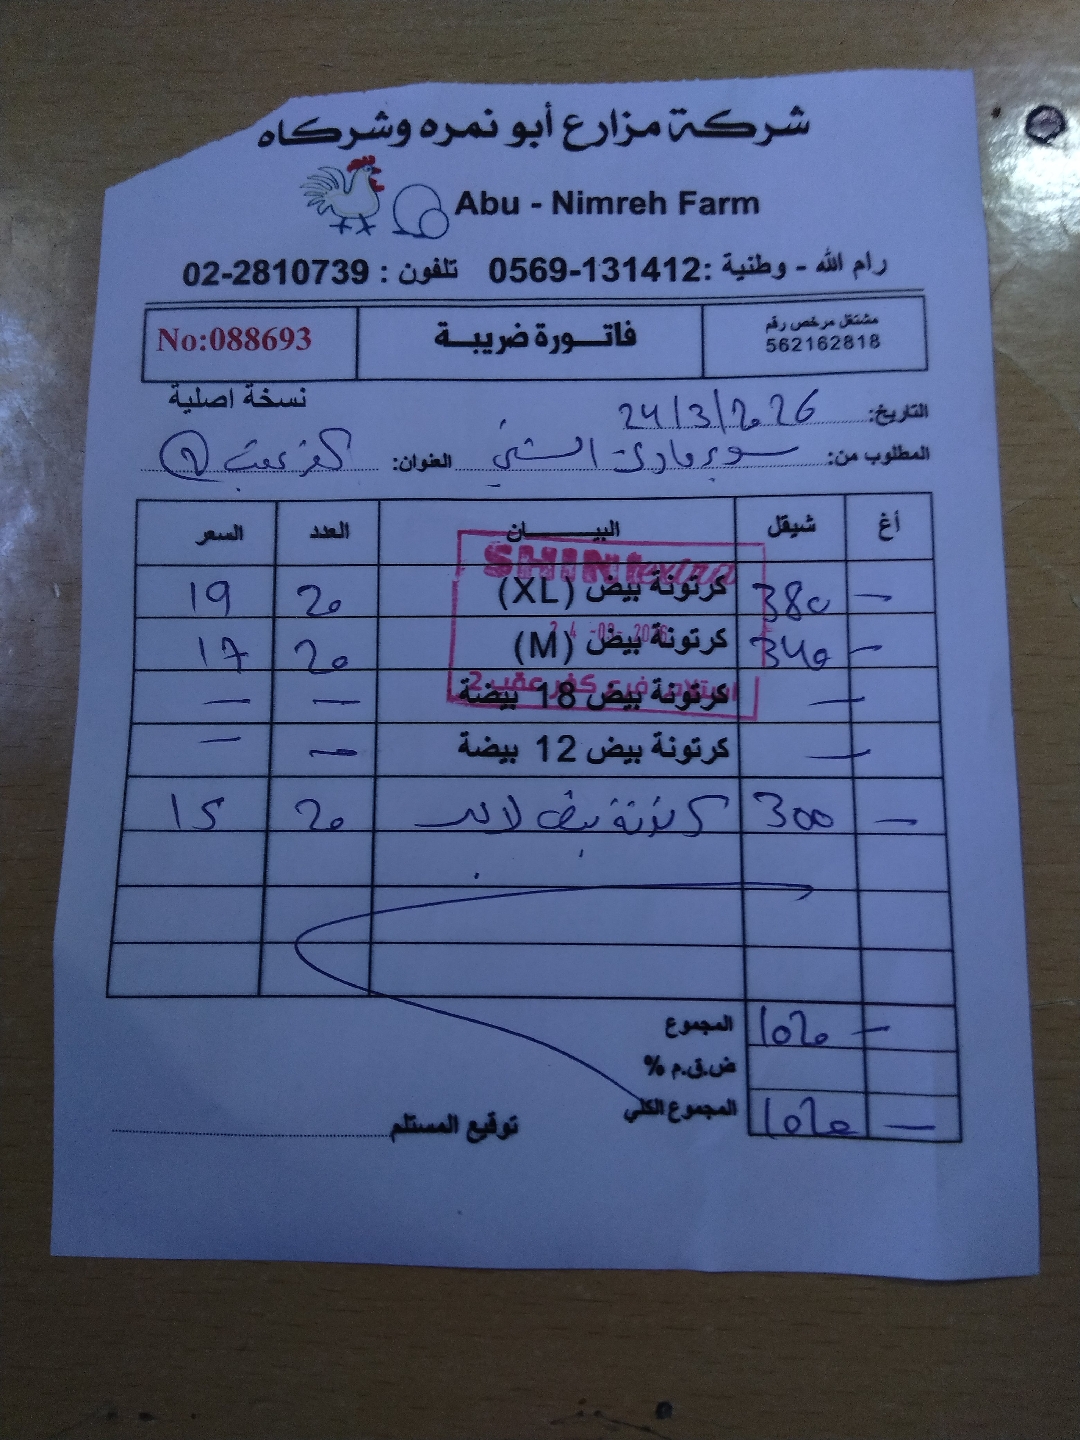 شركة مزارع أبو نمره وشركاه
Abu - Nimreh Farm
رام الله - وطنية :0569-131412 تلفون : 02-2810739
مشتغل مرخص رقم
562162818
فاتـــورة ضريبـــة
No:088693
نسخة اصلية
التاريخ: 24/3/2026
المطلوب من: سوبر ماركت الشني العنوان: كفر عقب 2
أغ شيقل البيـــــان العدد السعر
SHINI extra
— 380 كرتونة بيض (XL) 20 19
24 -03- 2026
— 340 كرتونة بيض (M) 20 17
استلام فرع كفر عقب 2
— كرتونة بيض 18 بيضة — —
— كرتونة بيض 12 بيضة — —
— 300 كرتونة بيض 20 15
المجموع 1020 —
ض.ق.م %
المجموع الكلي 1020 —
توقيع المستلم